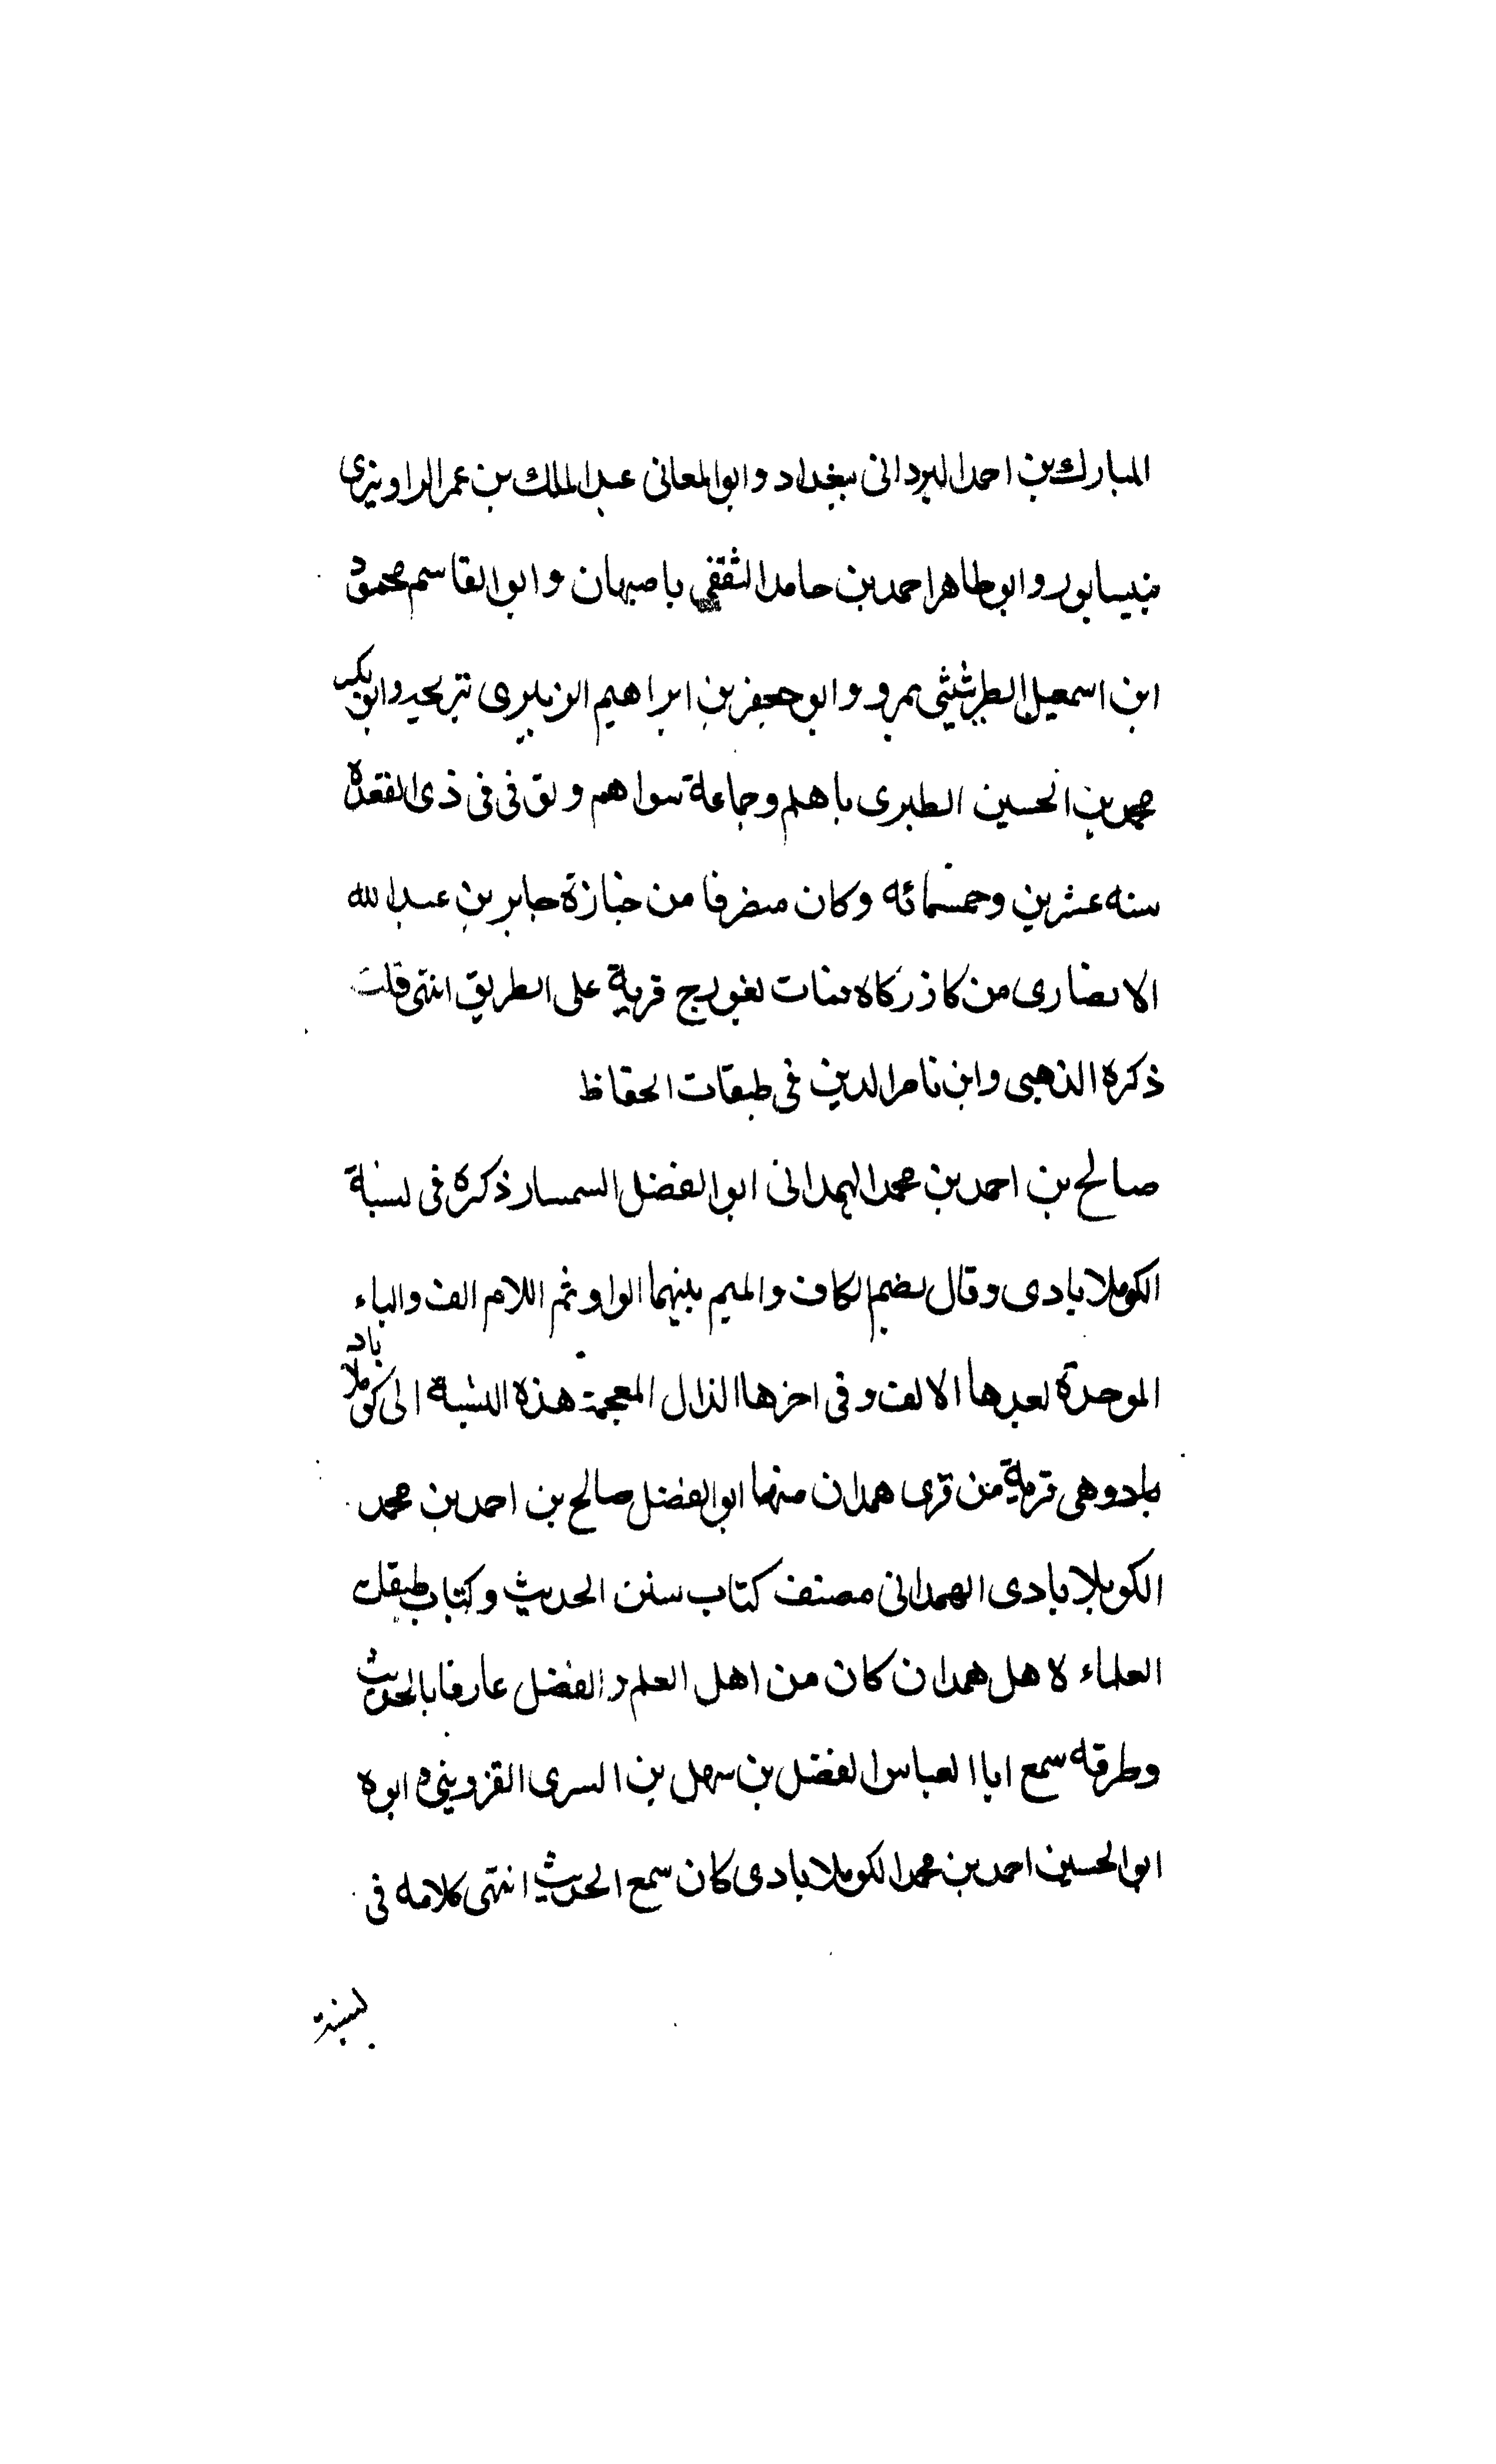 المبارك بن احمد البردانى ببغداد وابو المعانى عبد الملك بن عمر الراونيزى
بنيسابور وابو طاهر احمد بن حامد الثقفى باصبهان وابو القاسم محمود
ابن اسمعيل الطريثيثى بمرو وابو جعفر بن ابراهيم الزبيرى وابو بكر
محمد بن الحسين الطبرى باهلم وجماعة سواهم وتوفى فى ذى القعدة
سنه عشرين وخمسمائه وكان منصرفا من جنازة جابر بن عبد الله
الانصارى من كاذركاه فمات بغورج قرية على الطريق انتهى قلت
ذكره الذهبى وابن ناصر الدين فى طبقات الحفاظ
صالح بن احمد بن محمد الهمدانى ابو الفضل السمسار ذكره فى نسبة
الكوملابادى وقال بضم الكاف والميم بينهما الواو ثم اللام الف والباء
الموحدة بعدها الالف وفى اخرها الذال المعجمة هذه النسبة الى كوملاباد
باد وهى قرية من قرى همدان منها ابو الفضل صالح بن احمد بن محمد
الكوملابادى الهمدانى مصنف كتاب سنن الحديث وكتاب طبقات
العلماء لاهل همدان كان من اهل العلم والفضل عارفا بالحديث
وطرقه سمع ابا العباس الفضل بن سهل بن السرى القزوينى وابوه
ابو الحسين احمد بن محمد الكوملابادى كان سمع الحديث انتهى كلامه فى
نسبة